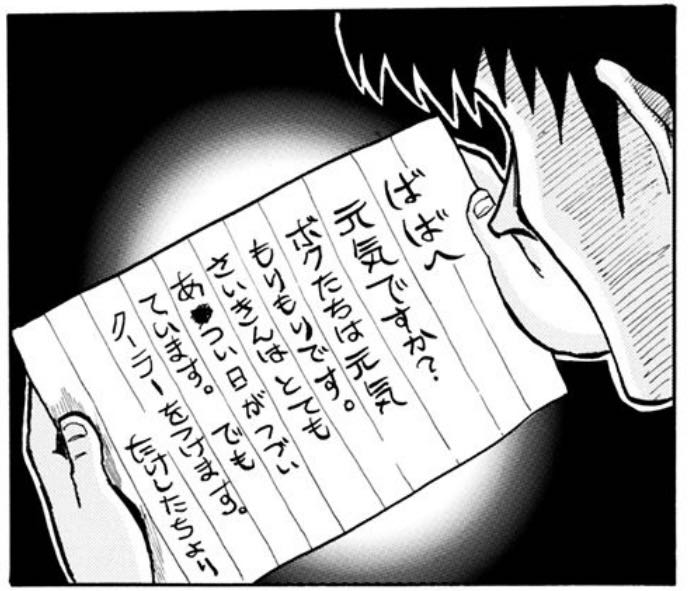 ばばへ
元気ですか?
ボクたちは元気
もりもりです。
さいきんはとても
あつい日がつづい
ています。でも
クーラーをつけます。
だけしたちより